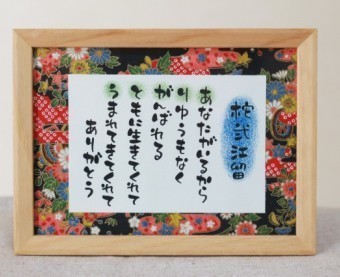 柁弐 江留
あなたがいるから
りゆうもなく
がんばれる
ともに生きてくれて
うまれてきてくれて
ありがとう